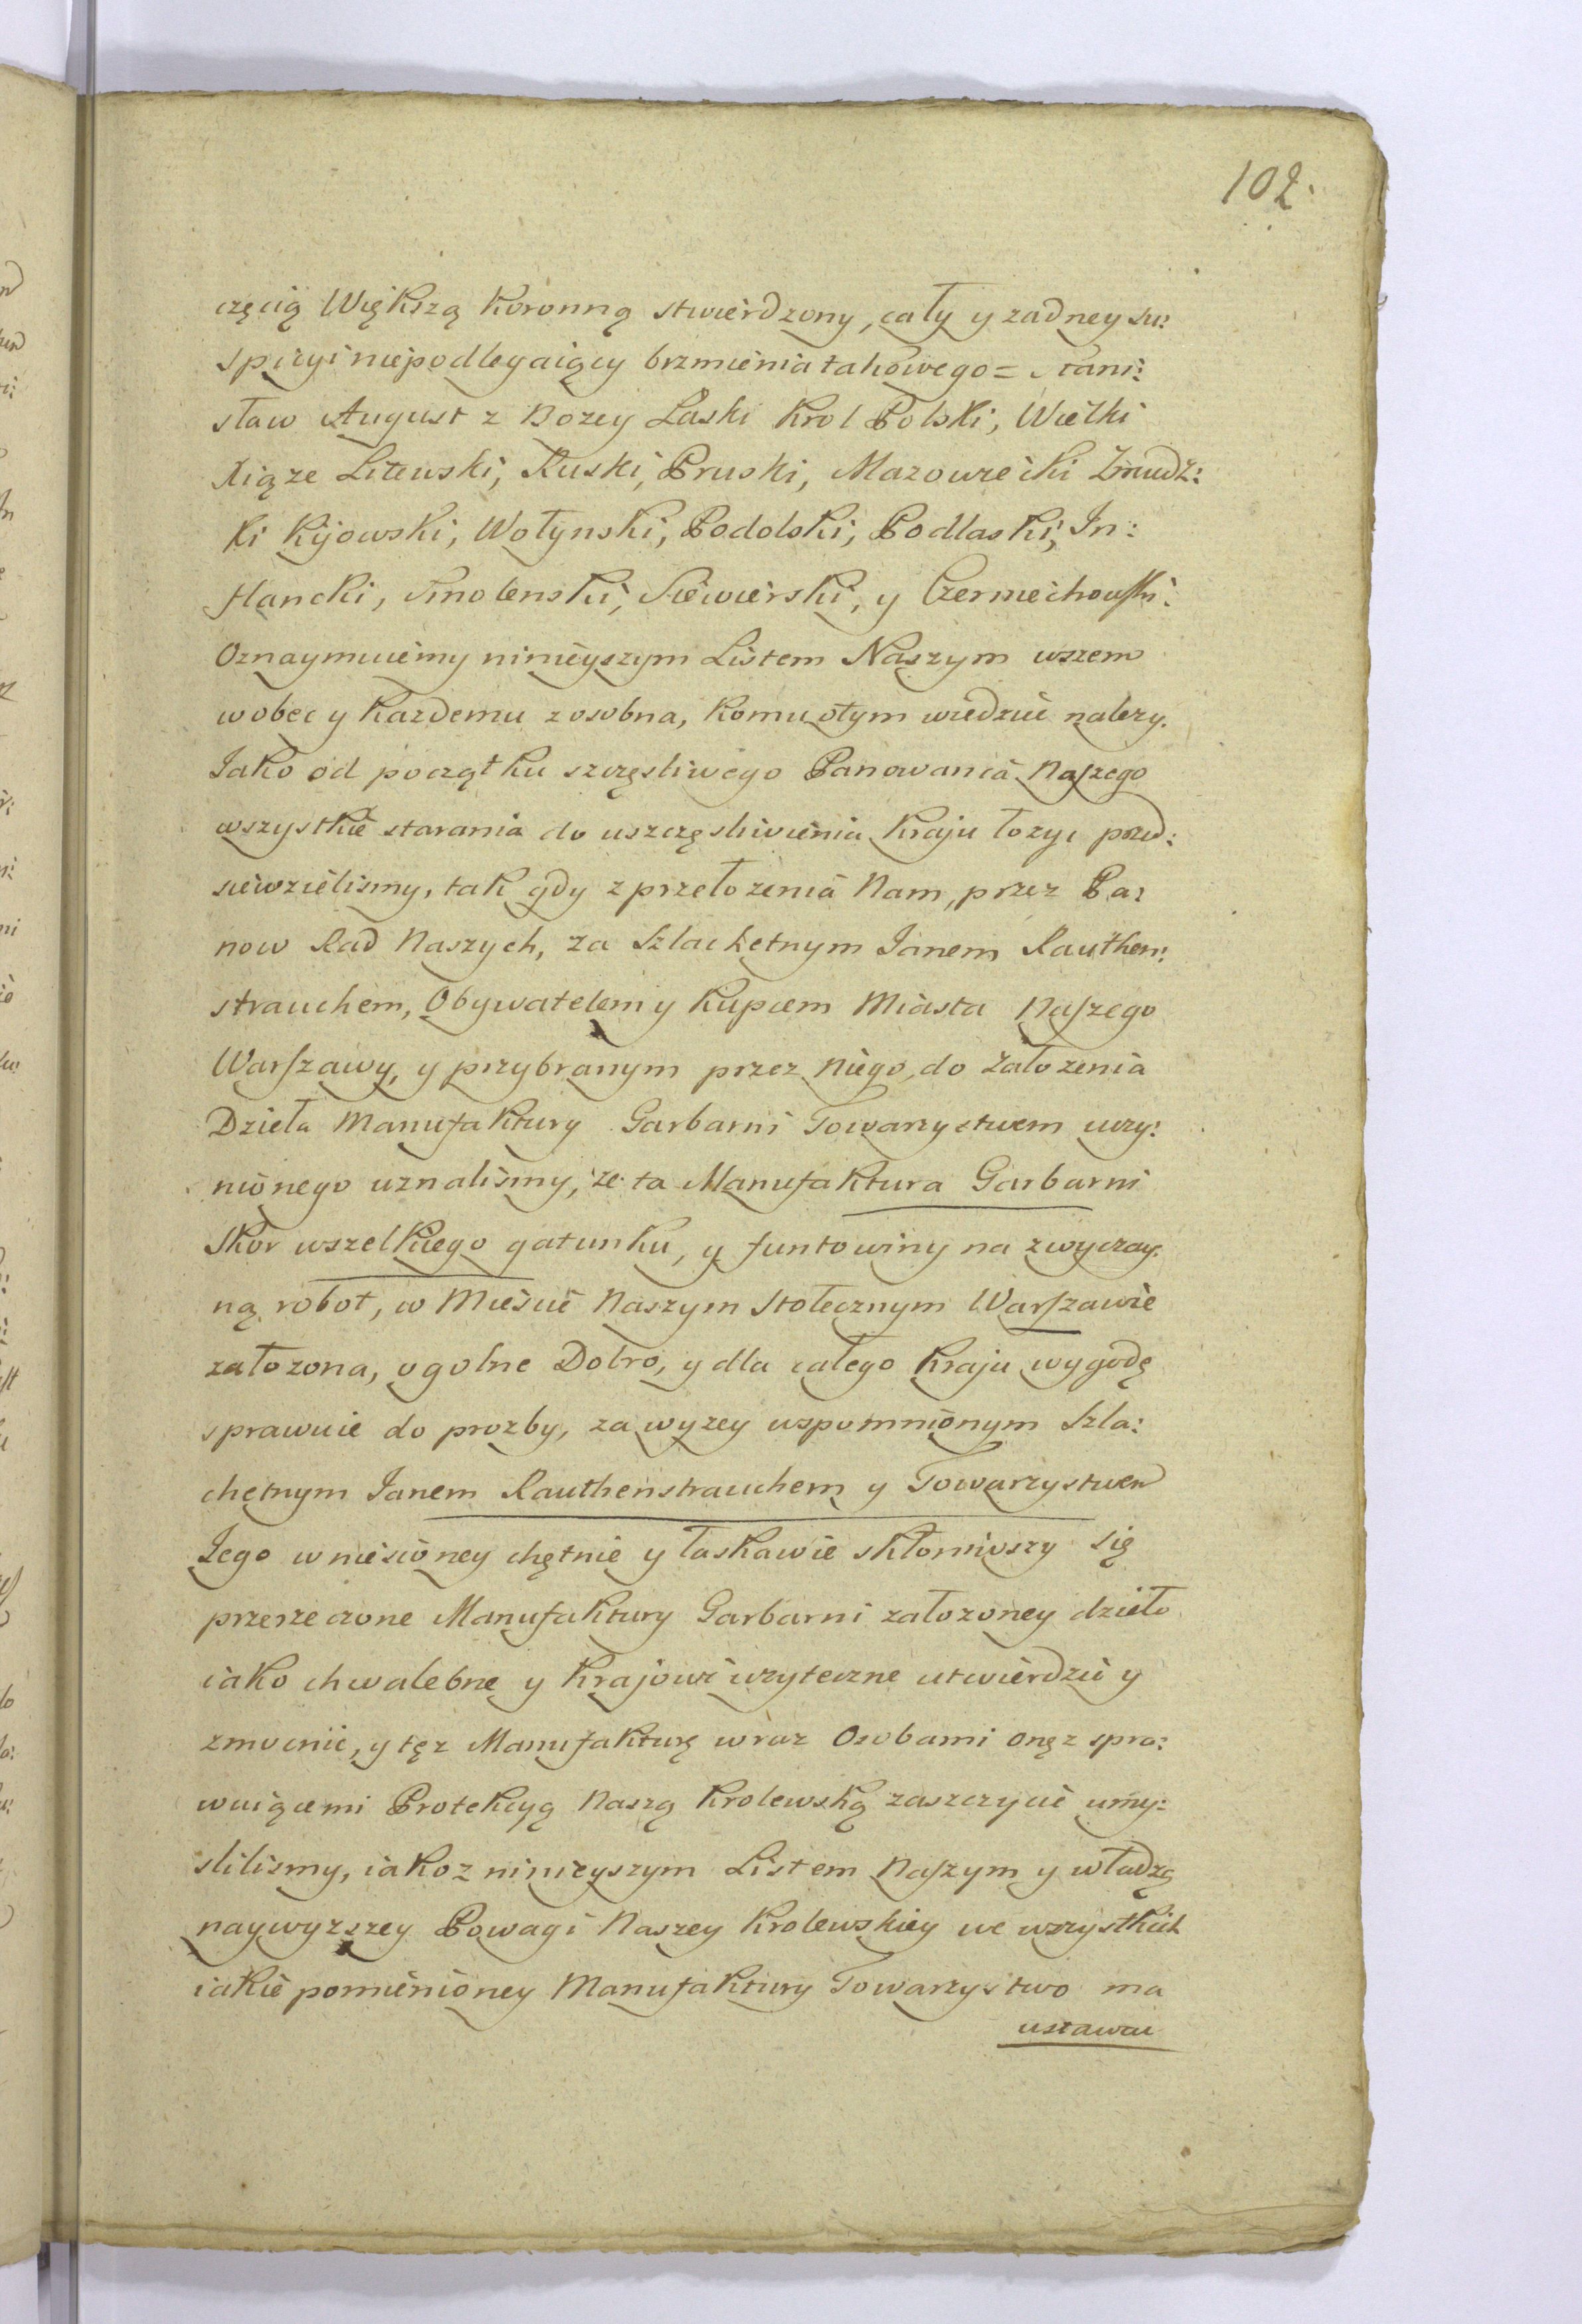 102.
częcią Większą Koronną stwierdzony, cały y zadney su:
spicyi niepodlegaiący brzmienia takowego = Stani:
sław August z Bozey Laski Krol Polski, Wielki
Xiąze Litewski, Ruski, Pruski, Mazowiecki Zmudz:
ki Kijowski, Wołynski, Podolski, Podlaski, In:
flancki, Smolenski, Siewierski, y Czerniechowski.
Oznaymuiemy ninieyszym Listem Naszym wszem
wobec y Kazdemu zosobna, Komu otym wiedzieć nalezy.
Jako od początku szczęsliwego Panowania Naszego
wszystkie starania do uszczęsliwienia Kraju łozyc przed:
siewzielismy, tak gdy z przełozenia Nam, przez Pa:
now Rad Naszych, za Szlachetnym Janem Rauthen:
strauchem, Obywatelem y Kupcem Miasta Naszego
Warszawy, y przybranym przez niego, do założenia
Dzieła Manufaktury Garbarni Towarzystwem uczy:
nionego uznalismy, ze ta Manufaktura Garbarni
Skor wszelkiego gatunku, y funtowiny na zwyczay.
ną robot, w Miescie Naszym Stołecznym Warszawie
załozona, ogolne Dobro, y dla całego Kraju wygodę
sprawuie do prozby, za wyzey wspomnionym Szla:
chetnym Janem Rauthenstrauchem y Towarzystwem
Jego wniesioney chętnie y łaskawie skłoniwszy się
przerzeczone Manufaktury Garbarni załozoney dzieło
iako chwalebne y Krajowi uzyteczne utwierdzić y
zmocnic, y tęz Manufakturę wraz Osobami onęz spra:
wuiącemi Protekcyą Naszą Krolewską zaszczycić umy:
slilismy, iakoz ninieyszym Listem Naszym y władzą
naywyzszey Powagi Naszey Krolewskiey we wszystkich
iakie pomienioney Manufaktury Towarzystwo ma
ustawac